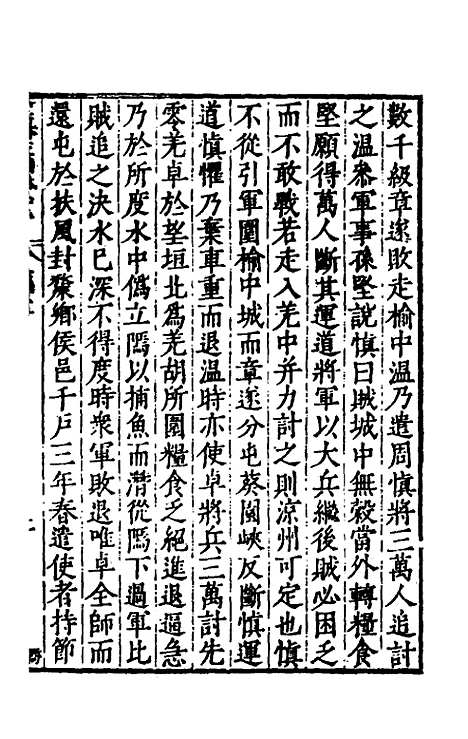 數千級章遂敗走榆中温乃遣周慎將三萬人追討
之温叅軍事孫堅説慎曰賊城中無穀當外轉糧食
堅願得萬人斷其運道將軍以大兵繼後賊必困乏
而不敢戰若走入羌中并力討之則涼州可定也慎
不從引軍圍榆中城而章遂分屯葵園峽反斷慎運
道慎懼乃棄車重而退温時亦使卓將兵三萬討先
零羌卓於望垣北爲羌胡所圍糧食乏絕進退逼急
乃於所度水中僞立隝以捕魚而潛從隝下過軍比
賊追之決水已深不得度時衆軍敗退唯卓全師而
還屯於扶風封斄鄉侯邑千戸三年春遣使者持節